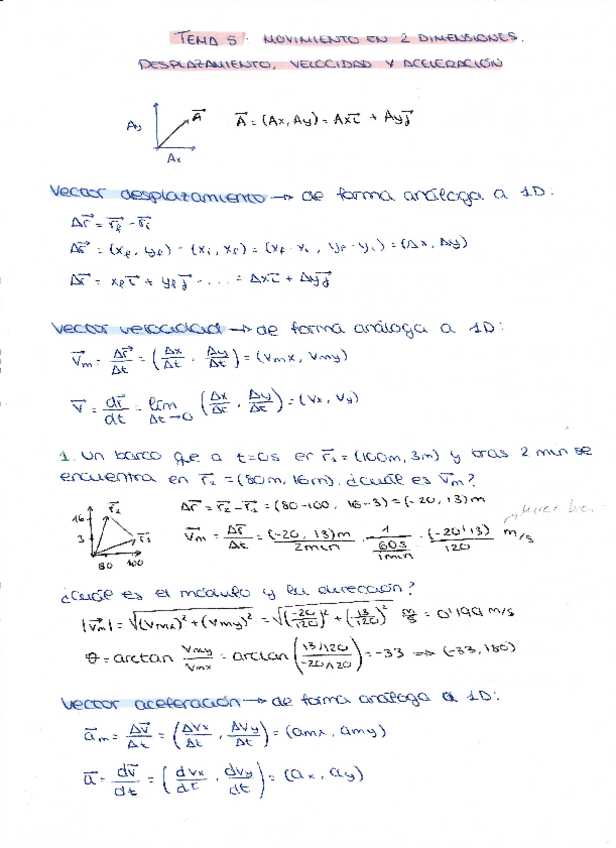 TEMA 5: MOVIMIENTO EN 2 DIMENSIONES.
DESPLAZAMIENTO, VELOCIDAD Y ACELERACIÓN
Ay
A⃗
Ax
A⃗ = (Ax, Ay) = Ax i⃗ + Ay j⃗
Vector desplazamiento → de forma análoga a 1D:
Δr⃗ = r⃗f - r⃗i
Δr⃗ = (xf, yf) - (xi, xf) = (xf - xi, yf - yi) = (Δx, Δy)
Δr⃗ = xf i⃗ + yf j⃗ - ... = Δx i⃗ + Δy j⃗
Vector velocidad → de forma análoga a 1D:
v⃗m = Δr⃗/Δt = (Δx/Δt, Δy/Δt) = (vmx, vmy)
v⃗ = dr⃗/dt = lím Δt→0 (Δx/Δt, Δy/Δt) = (vx, vy)
1. Un barco que a t=0s en r⃗1 = (100m, 3m) y tras 2 min se
encuentra en r⃗2 = (80m, 16m). ¿cuál es v⃗m?
16
3
r⃗2
r⃗1
80 100
Δr⃗ = r⃗2 - r⃗1 = (80-100, 16-3) = (-20, 13) m
v⃗m = Δr⃗/Δt = (-20, 13)m/2min · 1/(60s/1min) · (-20, 13)/120 m/s
¿Cuál es el módulo y su dirección?
|v⃗m| = √((vmx)² + (vmy)²) = √((-20/120)² + (13/120)²) m/s = 0'199 m/s
θ = arctan vmy/vmx = arctan (13/120 / -20/120) = -33 ⇒ (-33, 180)
Vector aceleración → de forma análoga a 1D:
a⃗m = Δv⃗/Δt = (Δvx/Δt, Δvy/Δt) = (amx, amy)
a⃗ = dv⃗/dt = (dvx/dt, dvy/dt) = (ax, ay)